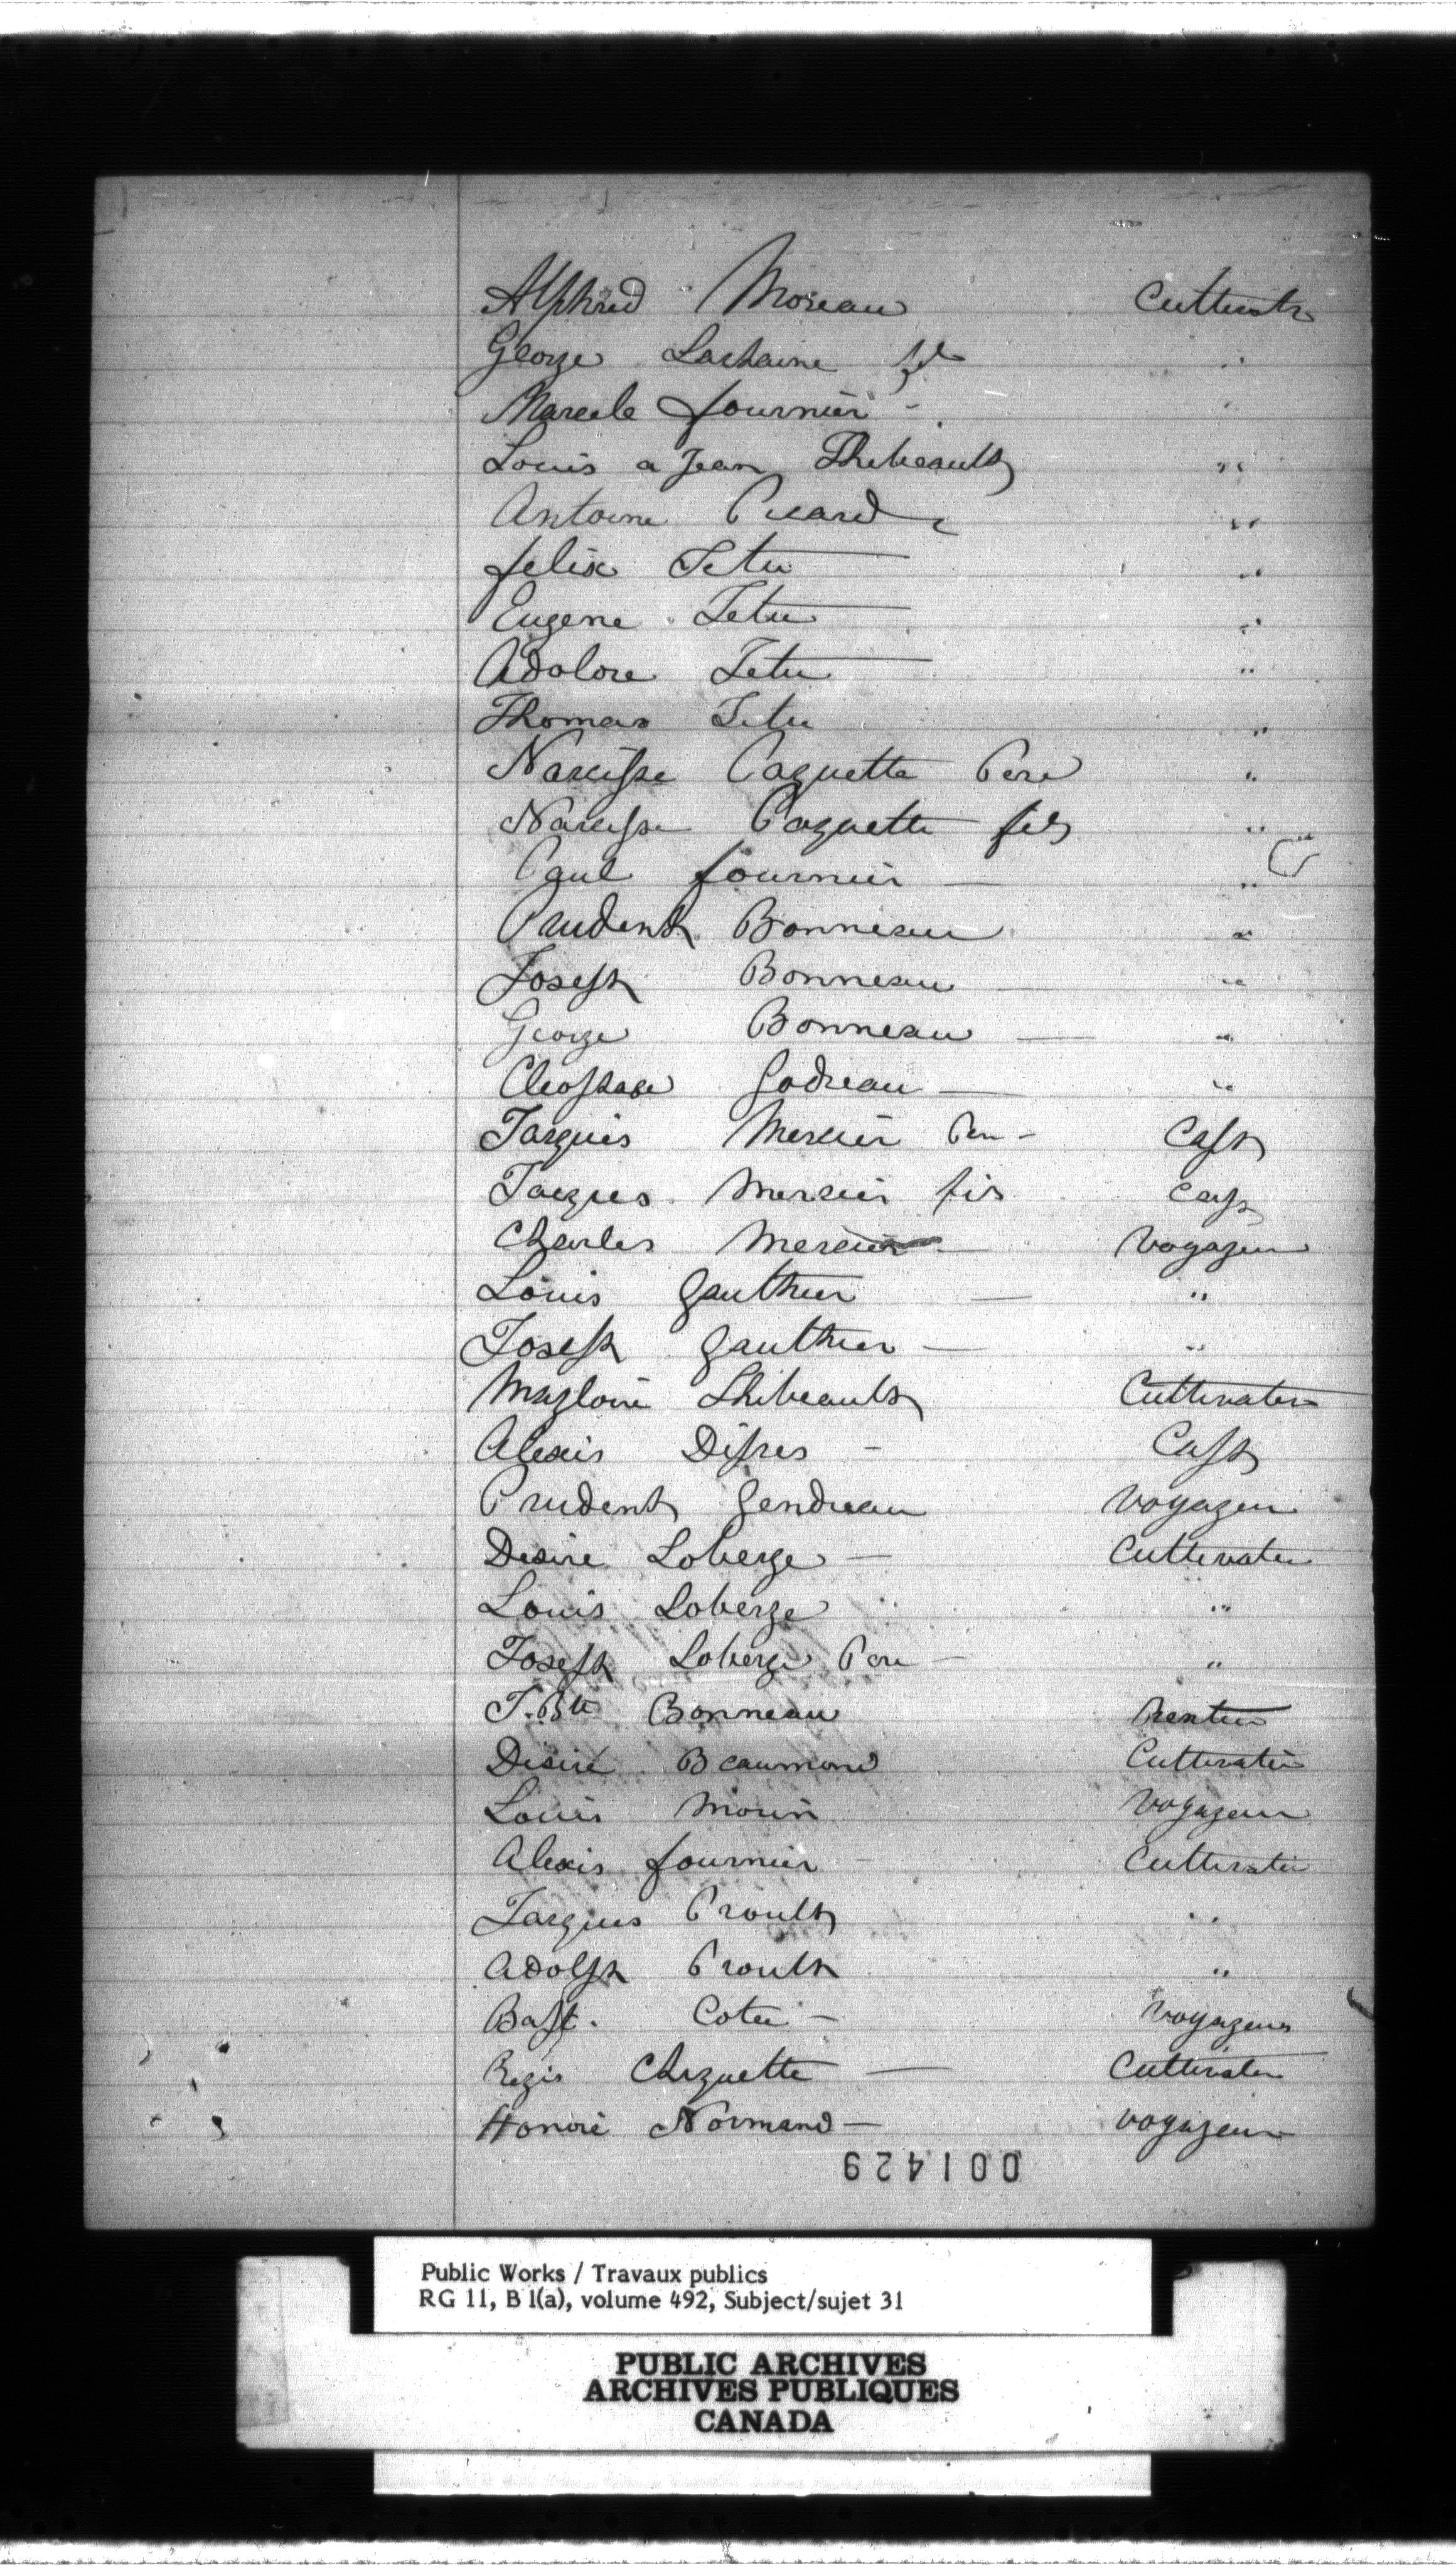 Alphred Moreau Cultivatr
George Lachaine fil
Marcele fournier - "
Louis a Jean Thibeault "
Antoine Picard "
felix Tetu "
Eugene Tetu "
Adolore Tetu "
Thomas Tetu "
Narcisse Paquette Pere "
Narcisse Paquette fils "
Paul fournier — "
Prudent Bonneau "
Joseph Bonneau — "
George Bonneau — "
Cleophase Godreau — "
Jacques Mercier Pere - Capt
Jacques Mercier fils Capt
Charles Mercier — Voyageur
Louis Gauthier — "
Joseph Gauthier — "
Magloire Thibeault Cultivateur
Alexis Dipres - Capt
Prudent Gendreau Voyageur
Desire Loberge — Cultivateur
Louis Loberge "
Joseph Loberge Pere — "
J. Bte Bonneau Rentier
Desiré Beaumond Cultivateur
Louis Morin Voyageur
Alexis fournier - Cultivateur
Jacques Proult "
Adolph Proult "
Bapt. Cotei - Voyageur
Regis Choquette — Cultivateur
Honoré Normand — voyageur
001429
Public Works / Travaux publics
RG 11, B 1(a), volume 492, Subject/sujet 31
PUBLIC ARCHIVES
ARCHIVES PUBLIQUES
CANADA